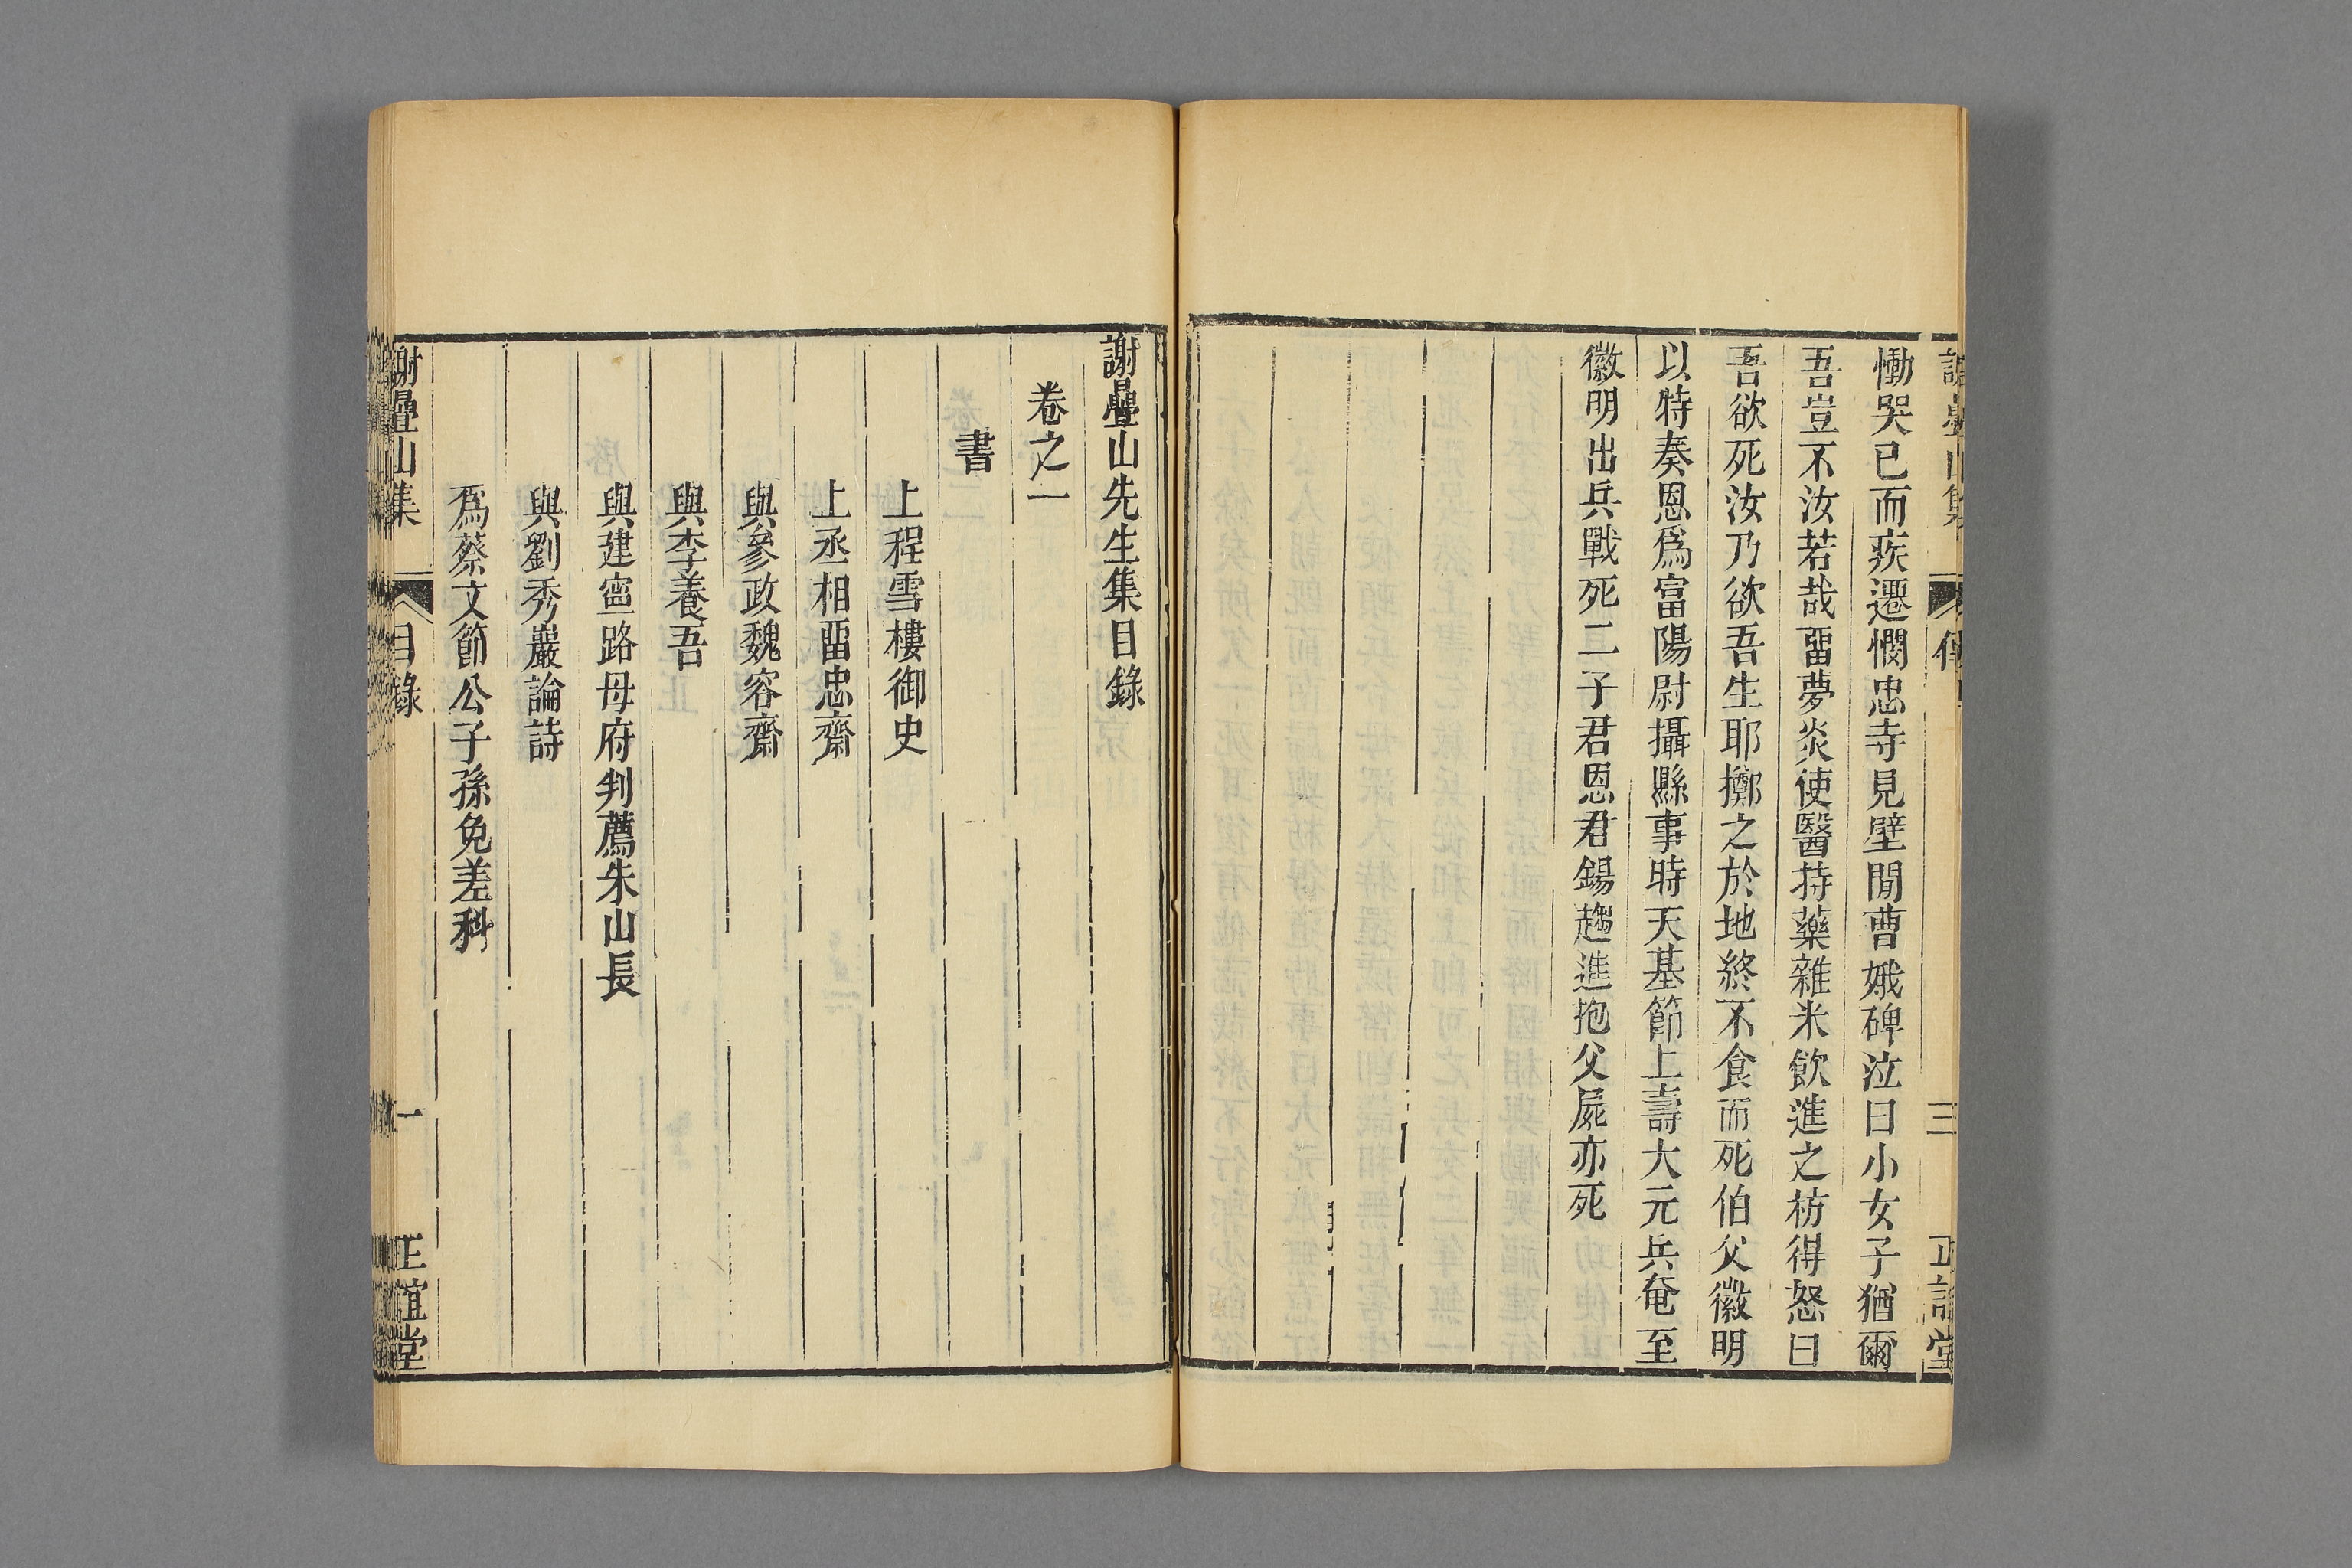 慟哭已而疾遷憫忠寺見壁閒曹娥碑泣曰小女子猶爾
吾豈不汝若哉畱夢炎使醫持藥雜米飲進之枋得怒曰
吾欲死汝乃欲吾生耶擲之於地終不食而死伯父徽明
以特奏恩爲富陽尉攝縣事時天基節上壽大元兵奄至
徽明出兵戰死二子君恩君錫趨進抱父屍亦死
謝疊山先生集目錄
卷之一
書
上程雪樓御史
上丞相畱忠齋
與參政魏容齋
與李養吾
與建寧路母府判薦朱山長
與劉秀巖論詩
爲蔡文節公子孫免差科
謝疊山集
目錄
一
正誼堂